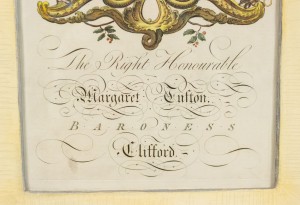 The Right Honourable
Margaret Tufton.
BARONESS
Clifford.